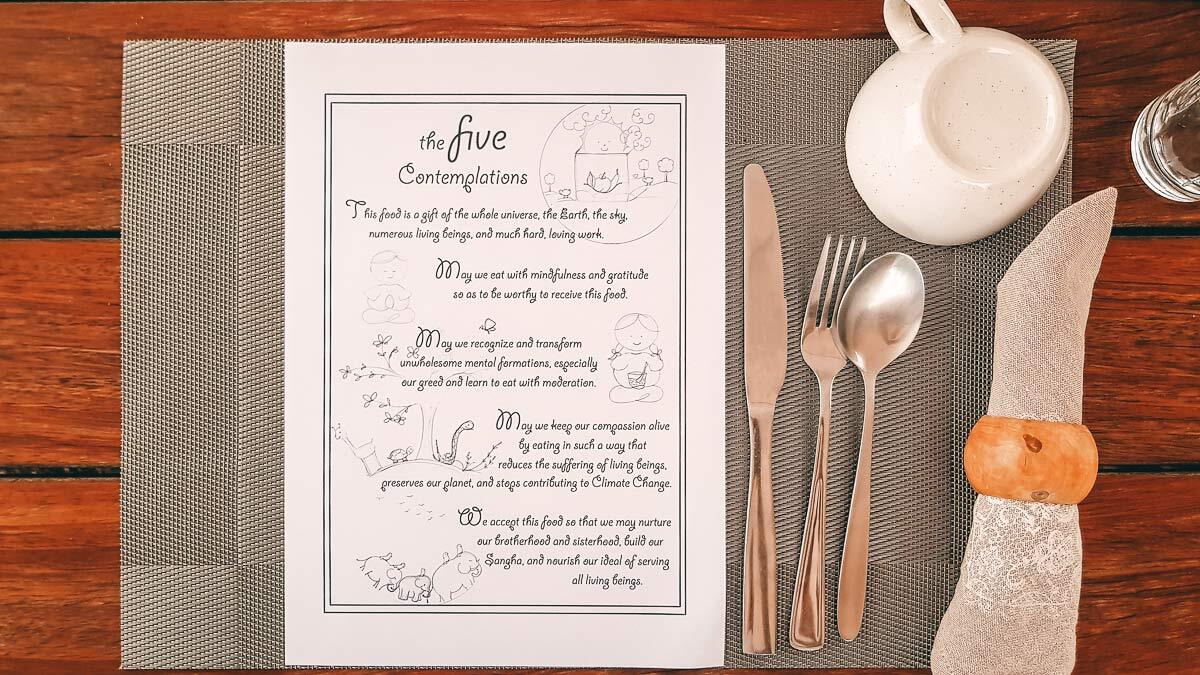 the five
Contemplations
This food is a gift of the whole universe, the Earth, the sky,
numerous living beings, and much hard, loving work.
May we eat with mindfulness and gratitude
so as to be worthy to receive this food.
May we recognize and transform
unwholesome mental formations, especially
our greed and learn to eat with moderation.
May we keep our compassion alive
by eating in such a way that
reduces the suffering of living beings,
preserves our planet, and stops contributing to Climate Change.
We accept this food so that we may nurture
our brotherhood and sisterhood, build our
Sangha, and nourish our ideal of serving
all living beings.